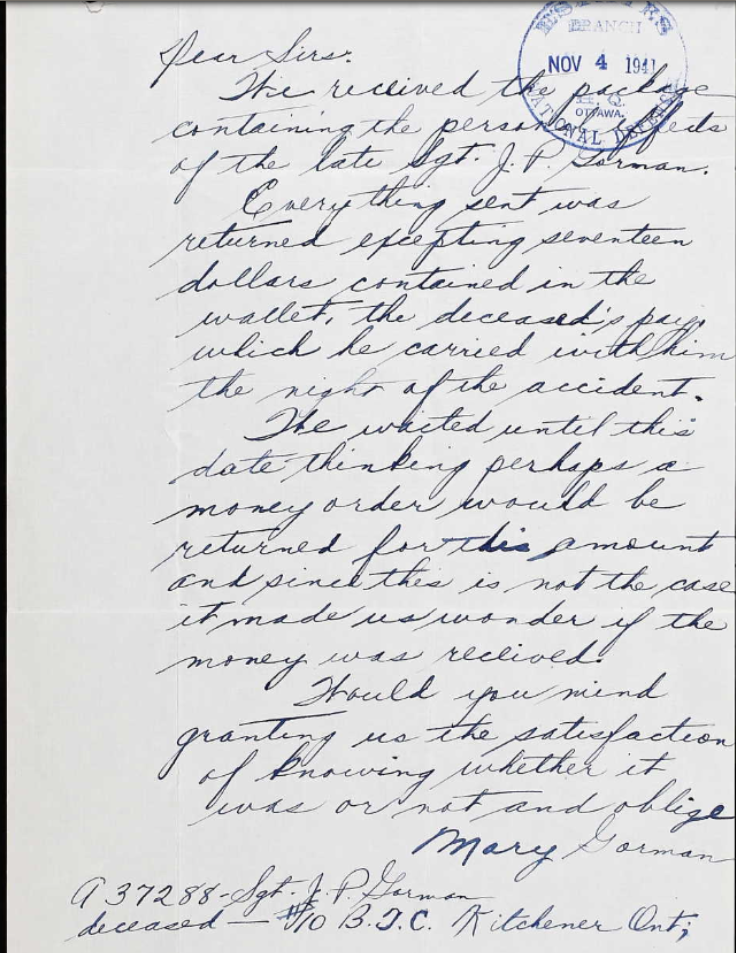 ESTATES
BRANCH
NOV 4 1941
H. Q.
OTTAWA.
NATIONAL DEFENSE
Dear Sirs:
We received the package
containing the personal effects
of the late Sgt. J. P. Gorman.
Everything sent was
returned excepting seventeen
dollars contained in the
wallet, the deceased's pay
which he carried with him
the night of the accident.
We waited until this
date thinking perhaps a
money order would be
returned for this amount
and since this is not the case
it made us wonder if the
money was received.
Would you mind
granting us the satisfaction
of knowing whether it
was or not and oblige
Mary Gorman
A 37288 - Sgt. J. P. Gorman
deceased — #10 B.T.C. Kitchener Ont;